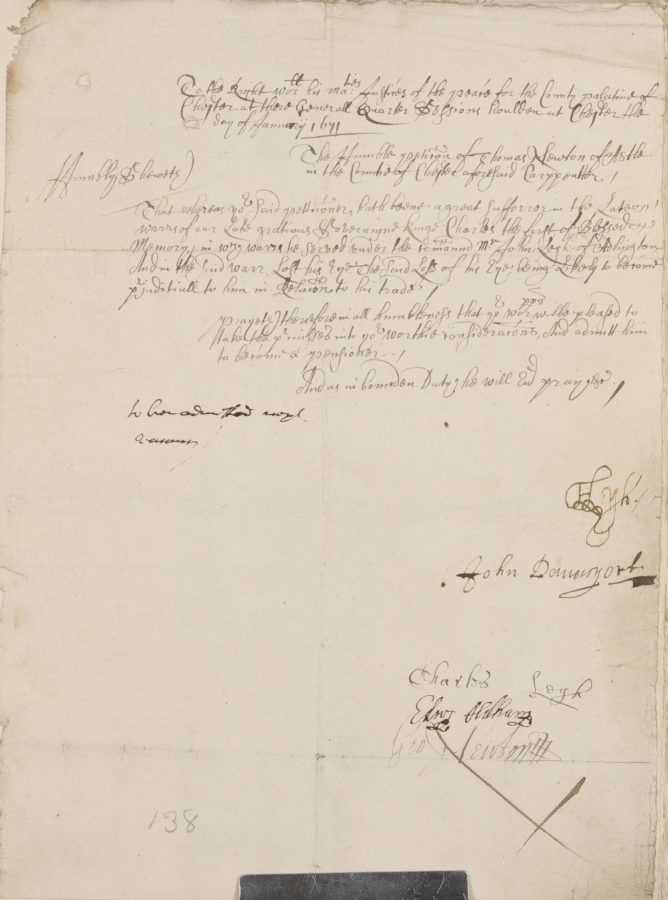 To the Right worll his maties Justices of the peace for the County palatine of
Chester at there Generall Quarter Sessions houlden at Chester the
day of January 1671
The Humble peticon of Thomas Newton of
in the Countie of Chester aforesaid Carppenter /
Humbly Sheweth)
That whereas yor said petticioner, hath beene a great sufferer in the Late
warrs of our Late gratious Soveraigne Kinge Charles the first of Blessed
Memory, in wch warrs he served under the Comannd Mr John Legh of Adlington
And in the said warr, Lost his Eye The said Loss of his Eye being Likely to become
pejuditiall to him in Relacon to his trade /
prayeth) therefore in all humbleness that yor worpps wilbe pleased to
take the pmisses into yor worthie consideracons, And admitt him
to become a pensioner /
And as in bownden Duty he will Evr pray &c /
to bee admitted next
vacancy
Legh /
John Davenport
Charles Legh
Edw: Oldham
Geo Newton
138